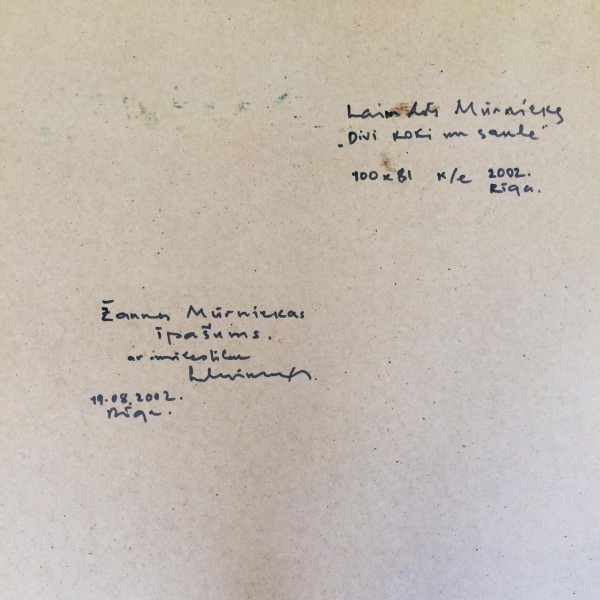 Laimdots Mūrnieks
„Divi koki un saule"
100x81 K/e 2002.
Rīga.
Žannas Mūrniekas
īpašums.
ar
19.08.2002.
Rīga.